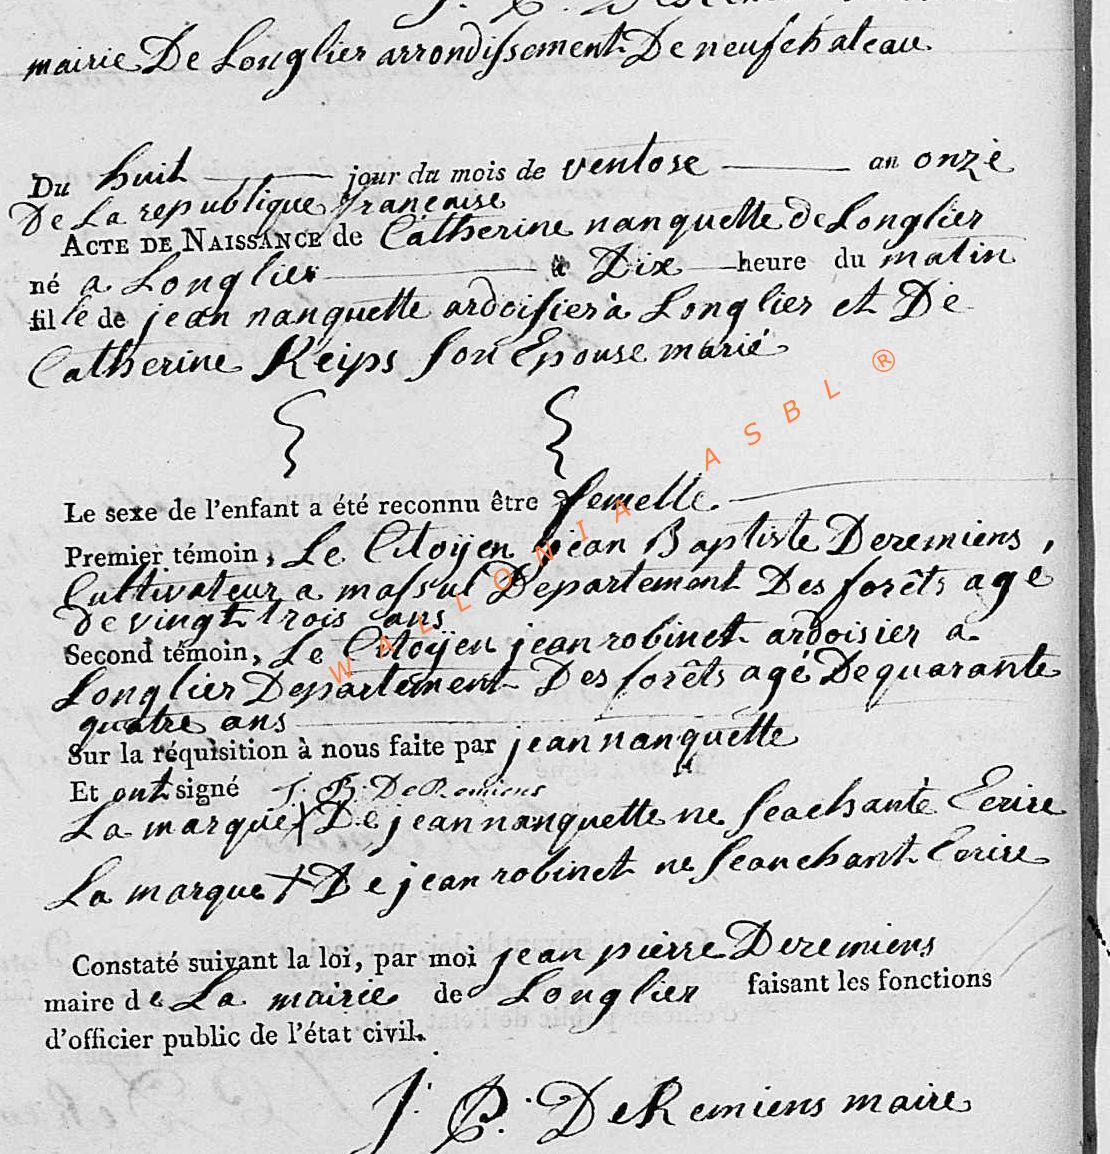 mairie De Longlier arrondissement De neufchateau
Du huit jour du mois de ventose an onze
De La republique française
ACTE DE NAISSANCE de Catherine nanquette de Longlier
né a Longlier à Dix heure du matin
fille de jean nanquette ardoisier à Longlier et De
Catherine Keips son Epouse marié
Le sexe de l'enfant a été reconnu être femelle
Premier témoin, Le Citoÿen jean Baptiste Deremiens,
Cultivateur a massul Departement Des forêts agé
de vingt trois ans
Second témoin, Le Citoÿen jean robinet ardoisier a
Longlier Departement Des forêts agé De quarante
quatre ans
Sur la réquisition à nous faite par jean nanquette
Et ont signé J. B. DeRemiens
La marque X De jean nanquette ne seachante Ecrire
La marque + De jean robinet ne seauchant Ecrire
Constaté suivant la loi, par moi jean pierre Deremiens
maire de La mairie de Longlier faisant les fonctions
d'officier public de l'état civil.
J. P. DeRemiens maire
WALLONIA ASBL ®